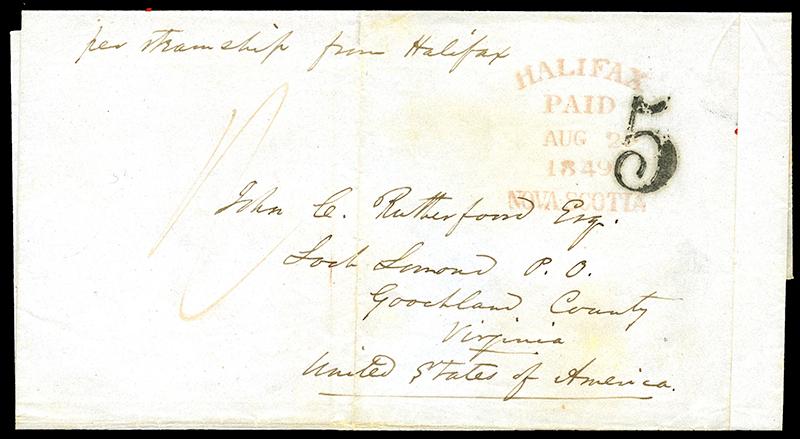 per steamship from Halifax
HALIFAX
PAID
AUG 2
1849
NOVA SCOTIA
5
John C. Rutherfoord Esq.
Loch Lomond P. O.
Goochland County
Virginia
United States of America.